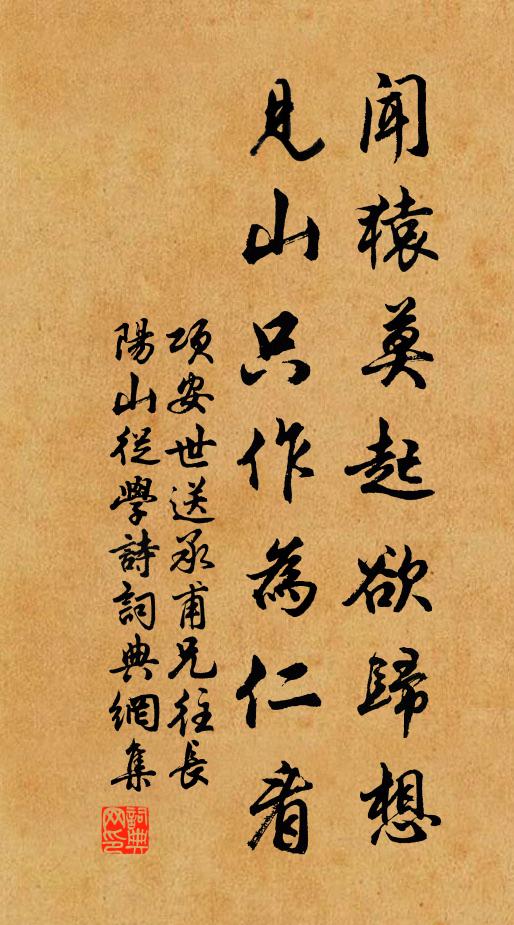 聞猿莫起欲歸想
見山只作為仁看
項安世送承甫兄往長
陽山從學詩詞典網集
詞典网印